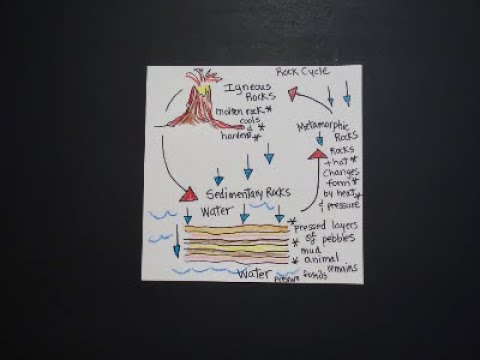 Rock Cycle
Igneous
Rocks
molten rock *
cools
& *
hardens *
Metamorphic
Rocks
Rocks
that *
changes
form *
by heat *
& pressure
Sedimentary Rocks
Water
* pressed layers
of
* pebbles
mud
* animal
remains
fossils
Water